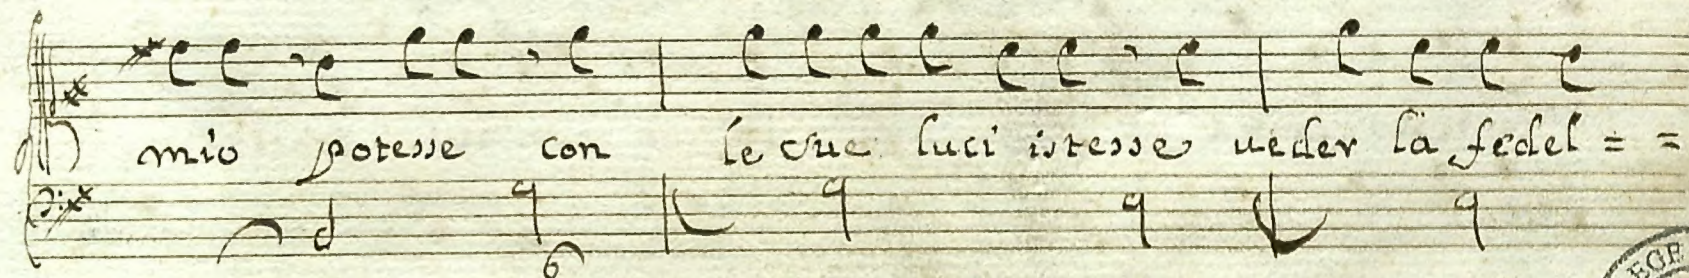 mio potesse con le sue luci istesse ueder la fedel = =
6
EGR